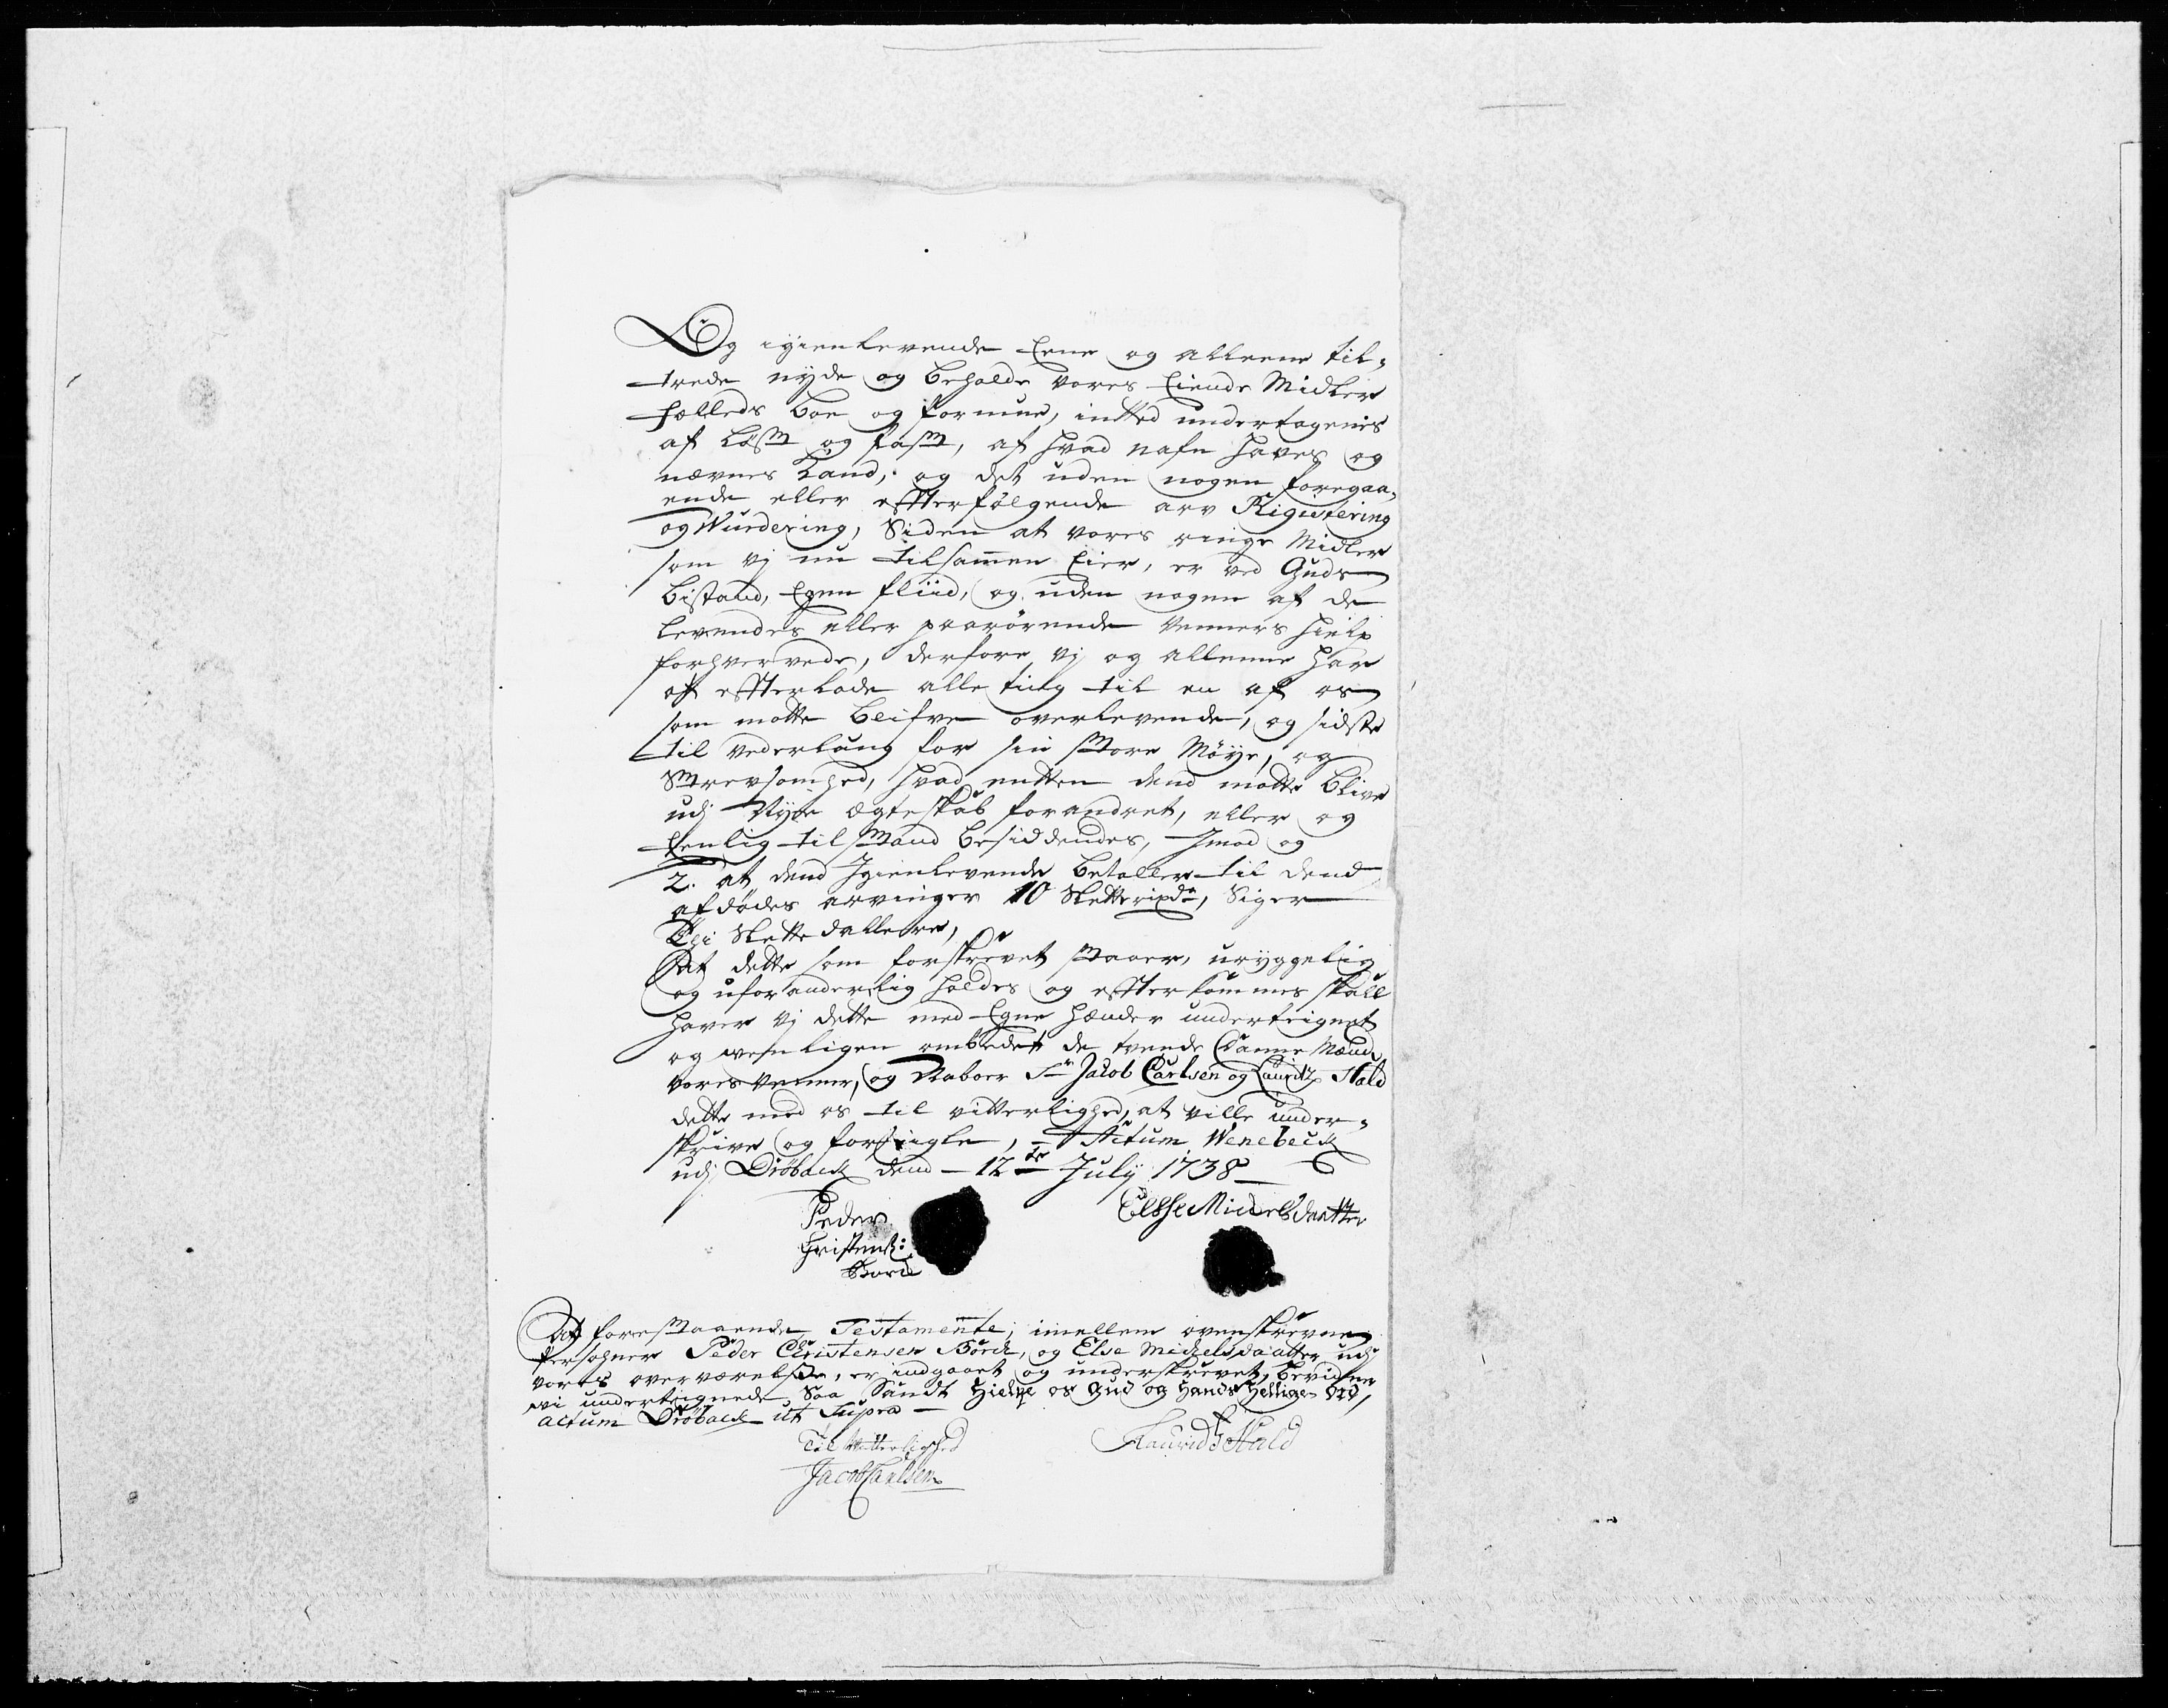 Og igienlevende Eene og alleene til-
trede nyde og beholde vores Eiende Midler
fælleds boe og formue, intted undertagenis
af løst og fast, af hvad nafn haves og
nævnes kand, og det uden nogen foregaa-
ende eller effterfølgende arv Rigistering
og Wurdering, Siden at vores ringe Midler
som vj nu tilsammen Eier, er ved Guds
bistand, Egen fliid, og uden nogen af de
levendes eller paarørende Venners hielp
forhvervede, derfore vj og alleene har
at effterlade alle ting til en af os
som motte blifve overlevende, og sidste
til vederlaug for sin store Møye, og
Strevsomhed, hvad entten dend motte blive
udj Nyt ægteskab forandret, eller og
Eenlig til stand besiddendes, Jmod og
2. at dend Igienlevende betaller til dend
afdødes arvinger 10 Slette rixdr, Siger
Tij Slette dallere,
At dette som forskrevet staaer, uryggelig
og uforanderlig holdes og effterkommes skall
haver vj dette med Egne hænder underteignet
og venligen ombedet de tvende Danne Mænd
vores venner, og Naboer Sr Jacob Carlsen og Lauritz Hald
dette med os til vitterlighed, at ville under-
skrive og forsegle, - Actum Wenebeck
udj Drøback dend - 12te July 1738
Peder
Christens:
Borck
Elsse Michelsdaatter
At forestaaende Testamente, imellem ovenskrevne
Persohner Peder Christensen Borck, og Else Michelsdaatter udj
vores overværelse, er indgaaet og underskrevet, bevidner
wi undertegnede Saa Sandt Hielpe os Gud og Hands Hellige Ord,
actum Drøback ut Supra -
Til Vitterlighed
Jacob Carlsen
Lauridtz Hald